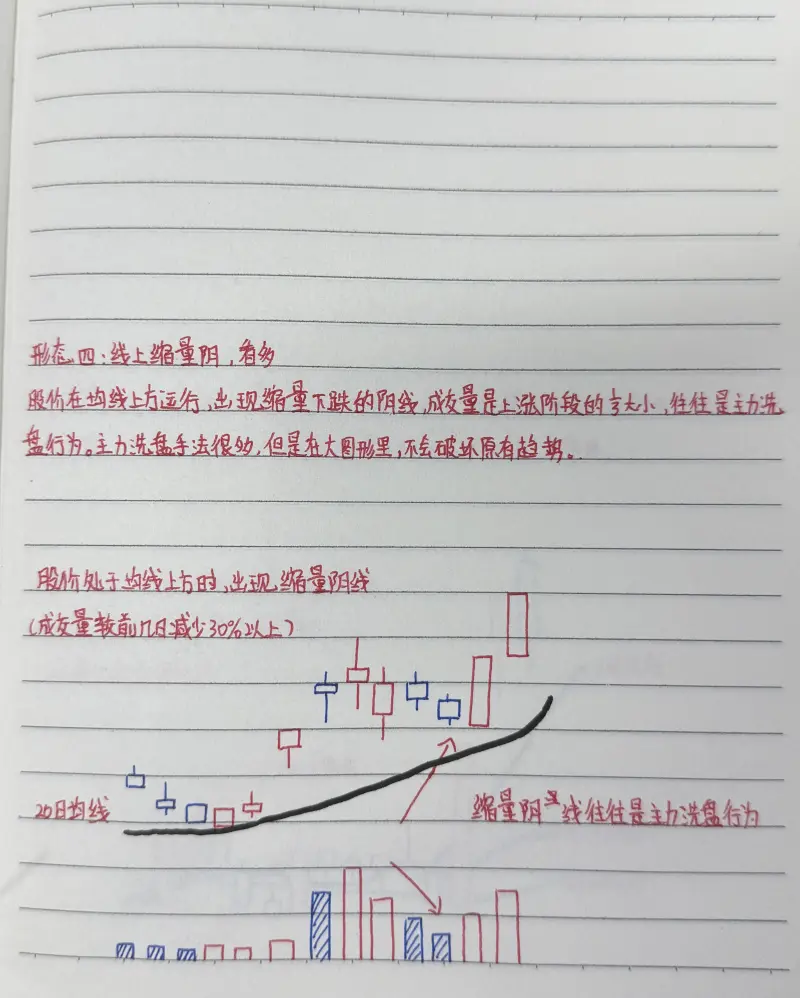 形态四：线上缩量阴，看多
股价在均线上方运行，出现缩量下跌的阴线，成交量是上涨阶段的⅓大小，往往是主力洗
盘行为。主力洗盘手法很多，但是在大图形里，不会破坏原有趋势。
股价处于均线上方时，出现缩量阴线
（成交量较前几日减少30%以上）
20日均线
缩量阴线往往是主力洗盘行为